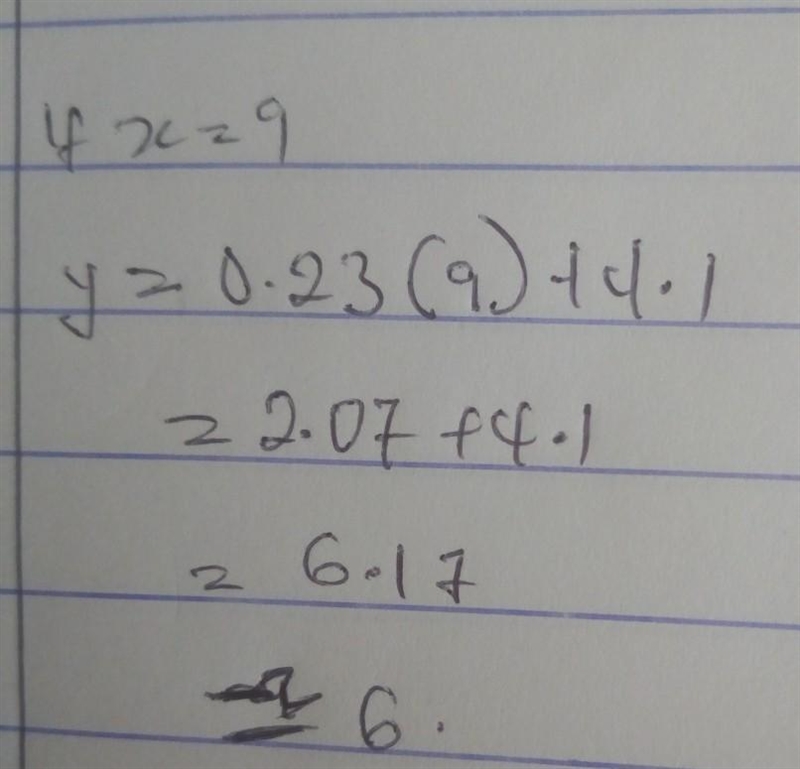 If x = 9
y = 0.23(9) + 4.1
= 2.07 + 4.1
= 6.17
= 6.